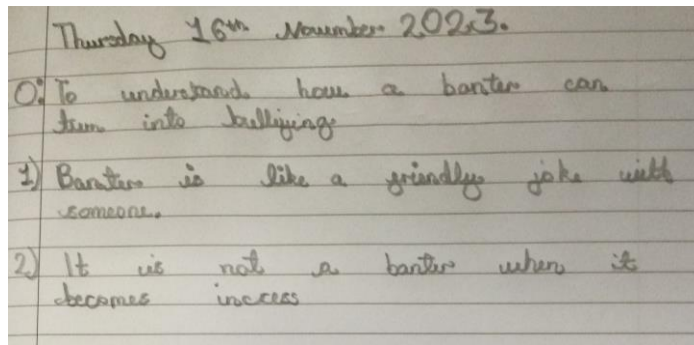 Thursday 16th November 2023.
O: To understand how a banter can
turn into bullying.
1) Banter is like a friendly joke with
someone.
2) It is not a banter when it
becomes inccess